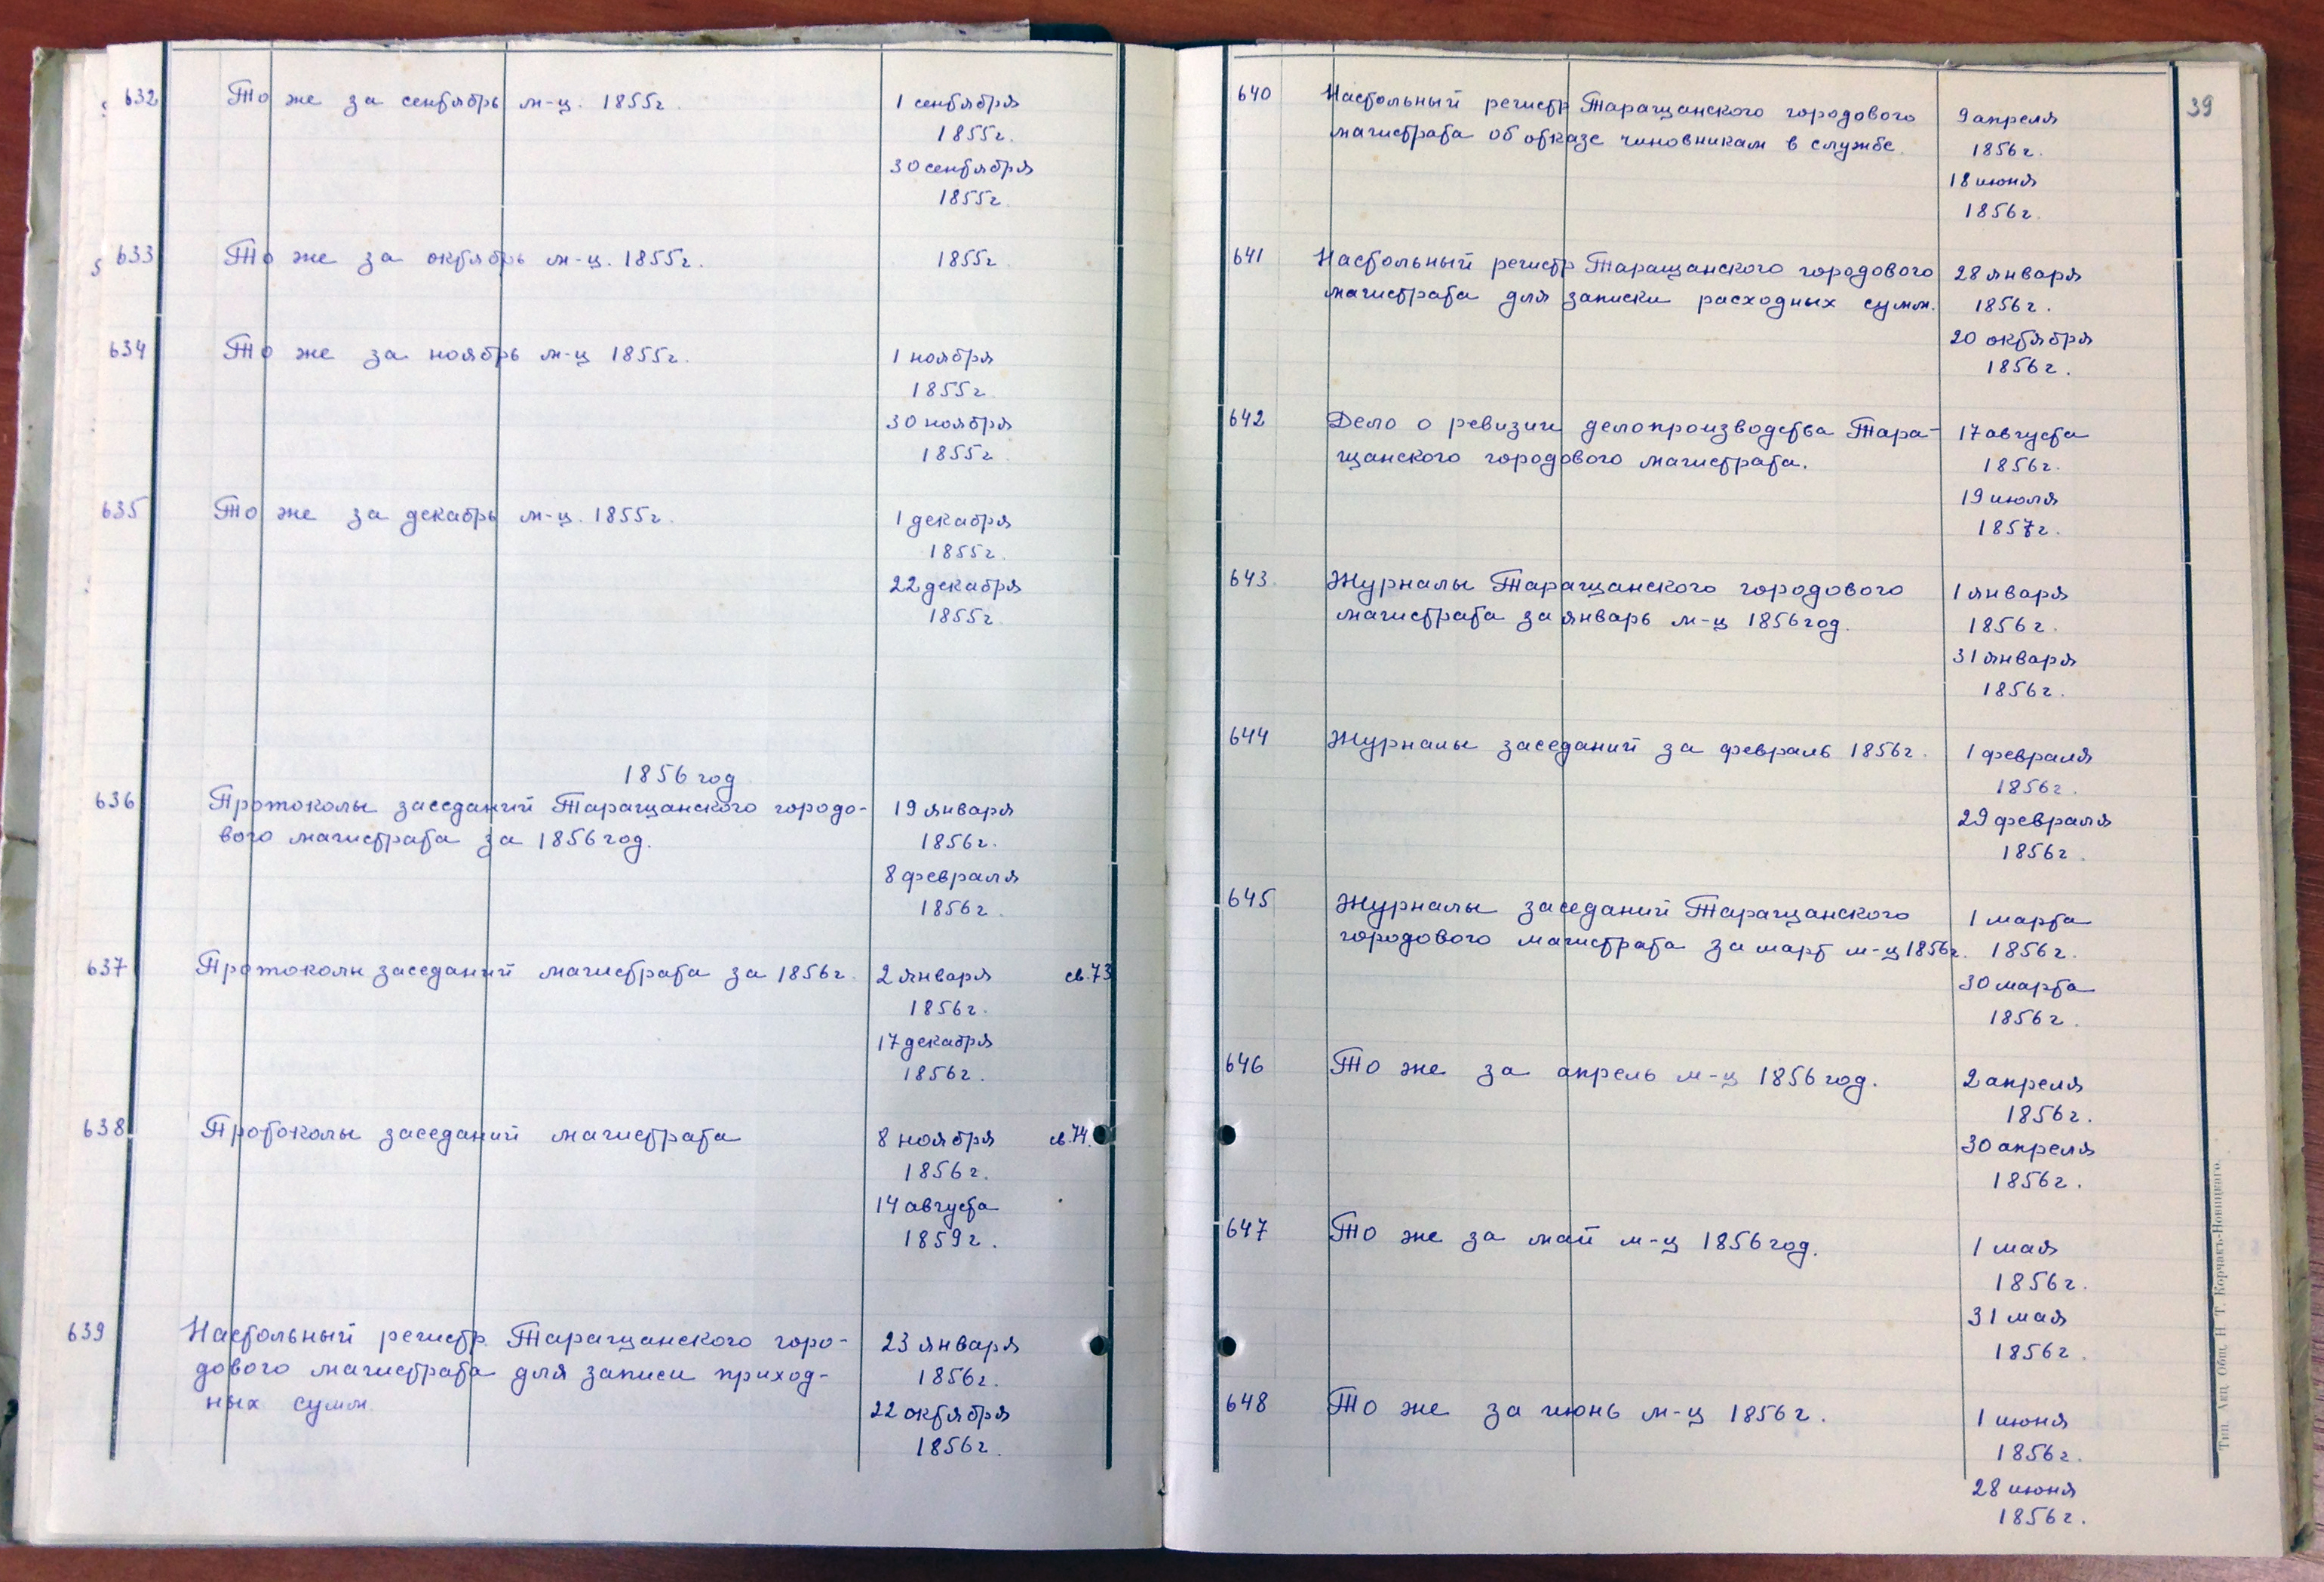 632 То же за сентябрь м-ц. 1855г. 1 сентября
1855г.
30 сентября
1855г.
633 То же за октябрь м-ц. 1855г. 1855г
634 То же за ноябрь м-ц 1855г. 1 ноября
1855г
30 ноября
1855г
635 То же за декабрь м-ц. 1855г. 1 декабря
1855г.
22 декабря
1855г
1856 год
636 Протоколы заседаний Таращанского городо- 19 января
вого магистрата за 1856 год. 1856г.
8 февраля
1856г.
637 Протоколы заседаний магистрата за 1856г. 2 января св.73
1856г.
17 декабря
1856г.
638 Протоколы заседаний магистрата 8 ноября св.74.
1856г.
14 августа
1859г.
639 Настольный регистр Таращанского горо- 23 января
дового магистрата для записи приход- 1856г.
ных сумм. 22 октября
1856г.
39
640 Настольный регистр Таращанского городового 9 апреля
магистрата об отказе чиновникам в службе. 1856г.
18 июня
1856г.
641 Настольный регистр Таращанского городового 28 января
магистрата для записки расходных сумм. 1856г.
20 октября
1856г.
642 Дело о ревизии делопроизводства Тара- 17 августа
щанского городового магистрата. 1856г.
19 июля
1857г.
643. Журналы Таращанского городового 1 января
магистрата за январь м-ц 1856 год. 1856г.
31 января
1856г.
644 Журналы заседаний за февраль 1856г. 1 февраля
1856г.
29 февраля
1856г.
645 Журналы заседаний Таращанского 1 марта
городового магистрата за март м-ц 1856г. 1856г.
30 марта
1856г.
646 То же за апрель м-ц 1856 год. 2 апреля
1856г.
30 апреля
1856г.
647 То же за май м-ц 1856 год. 1 мая
1856г.
31 мая
1856г.
648 То же за июнь м-ц 1856г. 1 июня
1856г.
28 июня
1856г.
Тип. Акц. Общ. Н. Т. Корчакъ-Новицкаго.